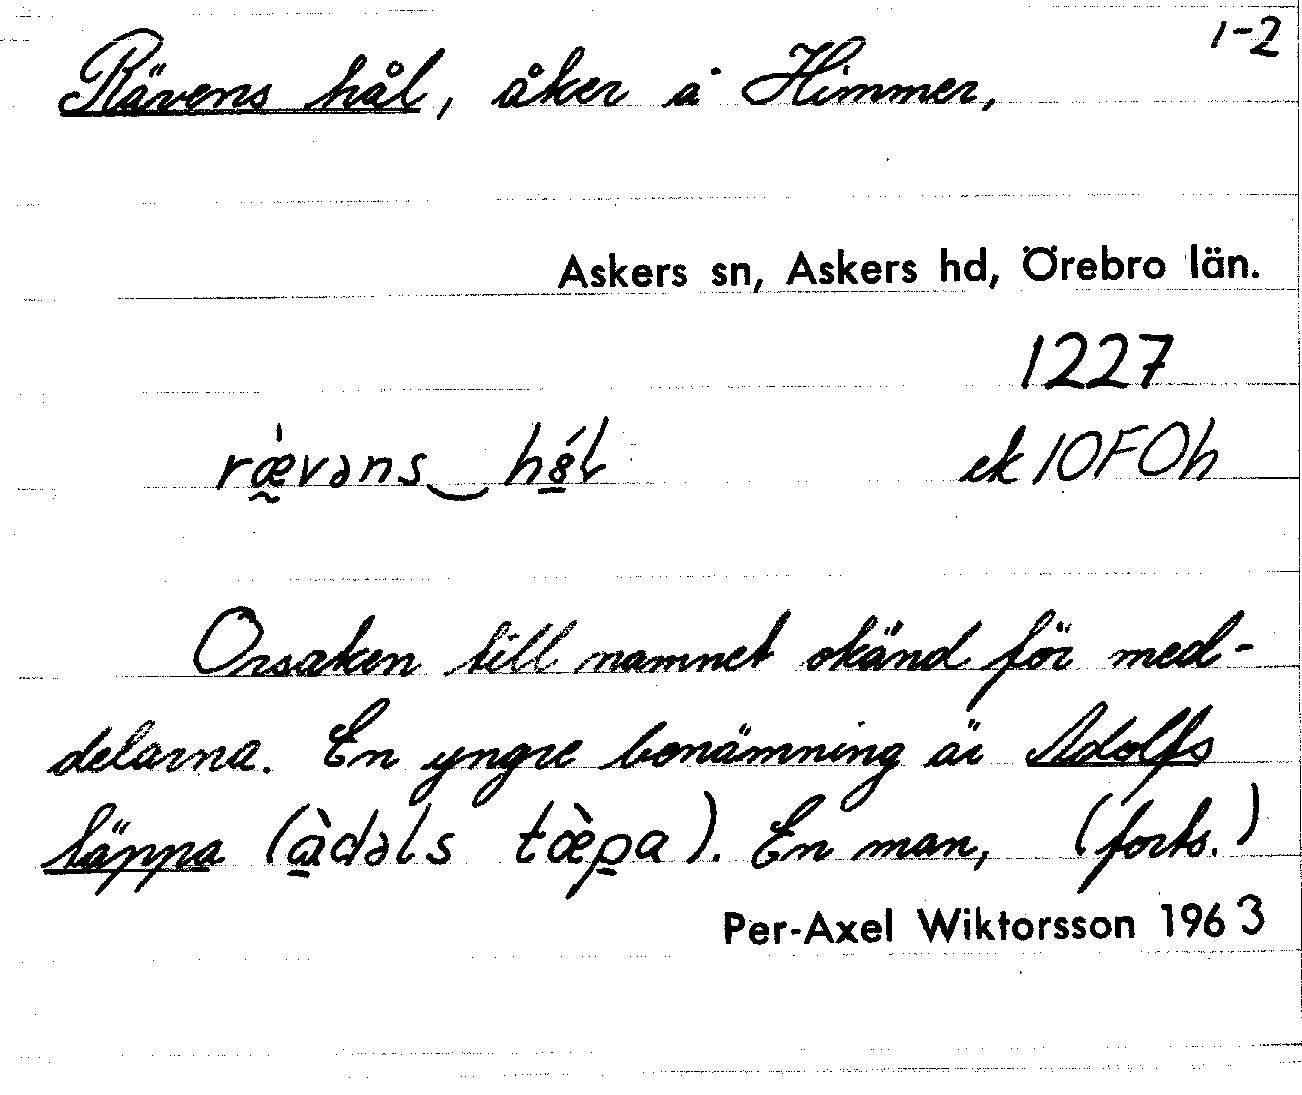 1-2
Rävens hål, åker å Himmer,
Askers sn, Askers hd, Örebro län.
1227
ræ̀vəns‿hó̱l ek 10F0h
Orsaken till namnet okänd för med-
delarna. En yngre benämning är Adolfs
täppa (àdəls tæ̀pa). En man, (forts.)
Per-Axel Wiktorsson 1963